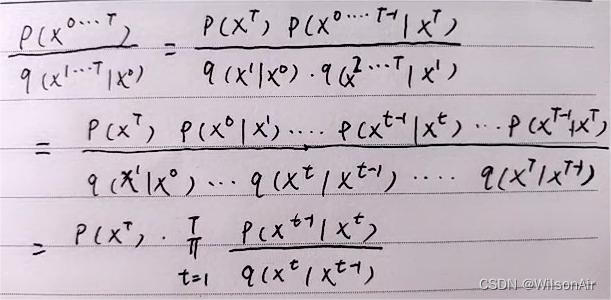 P(x^{0⋯T}) / q(x^{1⋯T}|x^0) = P(x^T) P(x^{0⋯T-1}|x^T) / q(x^1|x^0)·q(x^{2⋯T}|x^1)
= P(x^T) P(x^0|x^1)⋯P(x^{t-1}|x^t)⋯P(x^{T-1}|x^T) / q(x^1|x^0)⋯q(x^t|x^{t-1})⋯q(x^T|x^{T-1})
= P(x^T)·∏_{t=1}^{T} P(x^{t-1}|x^t) / q(x^t|x^{t-1})
CSDN @WilsonAir